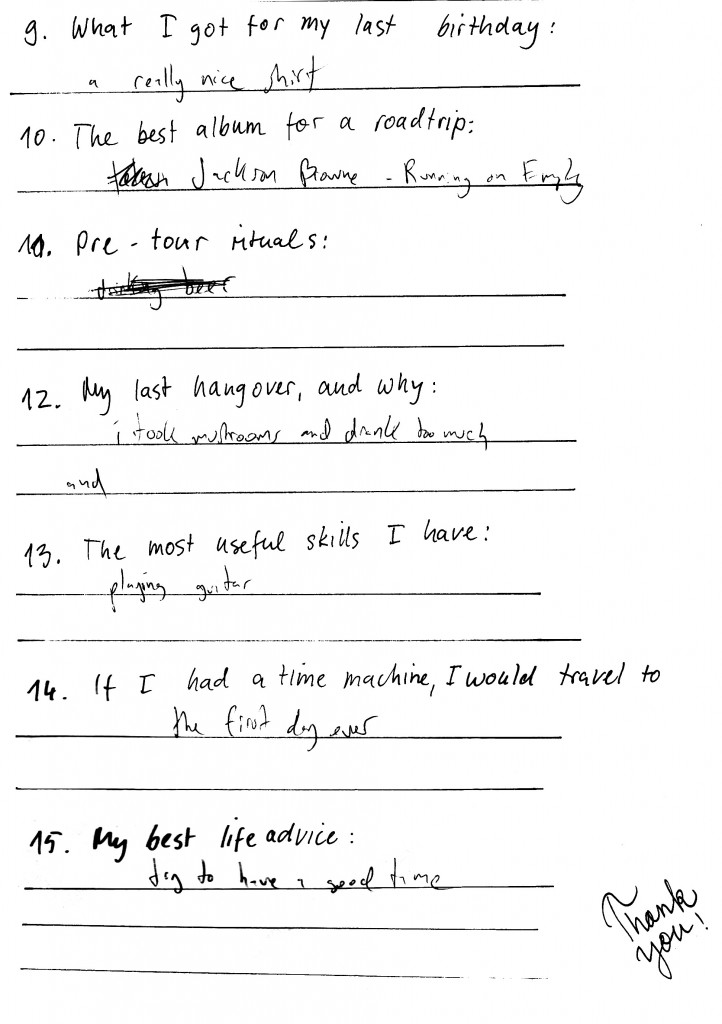 9. What I got for my last birthday:
a really nice shirt
10. The best album for a roadtrip:
Jackson Browne - Running on Empty
11. Pre-tour rituals:
drinking beer
12. My last hangover, and why:
i took mushrooms and drank too much
and
13. The most useful skills I have:
playing guitar
14. If I had a time machine, I would travel to
the first day ever
15. My best life advice:
try to have a good time
Thank
you!